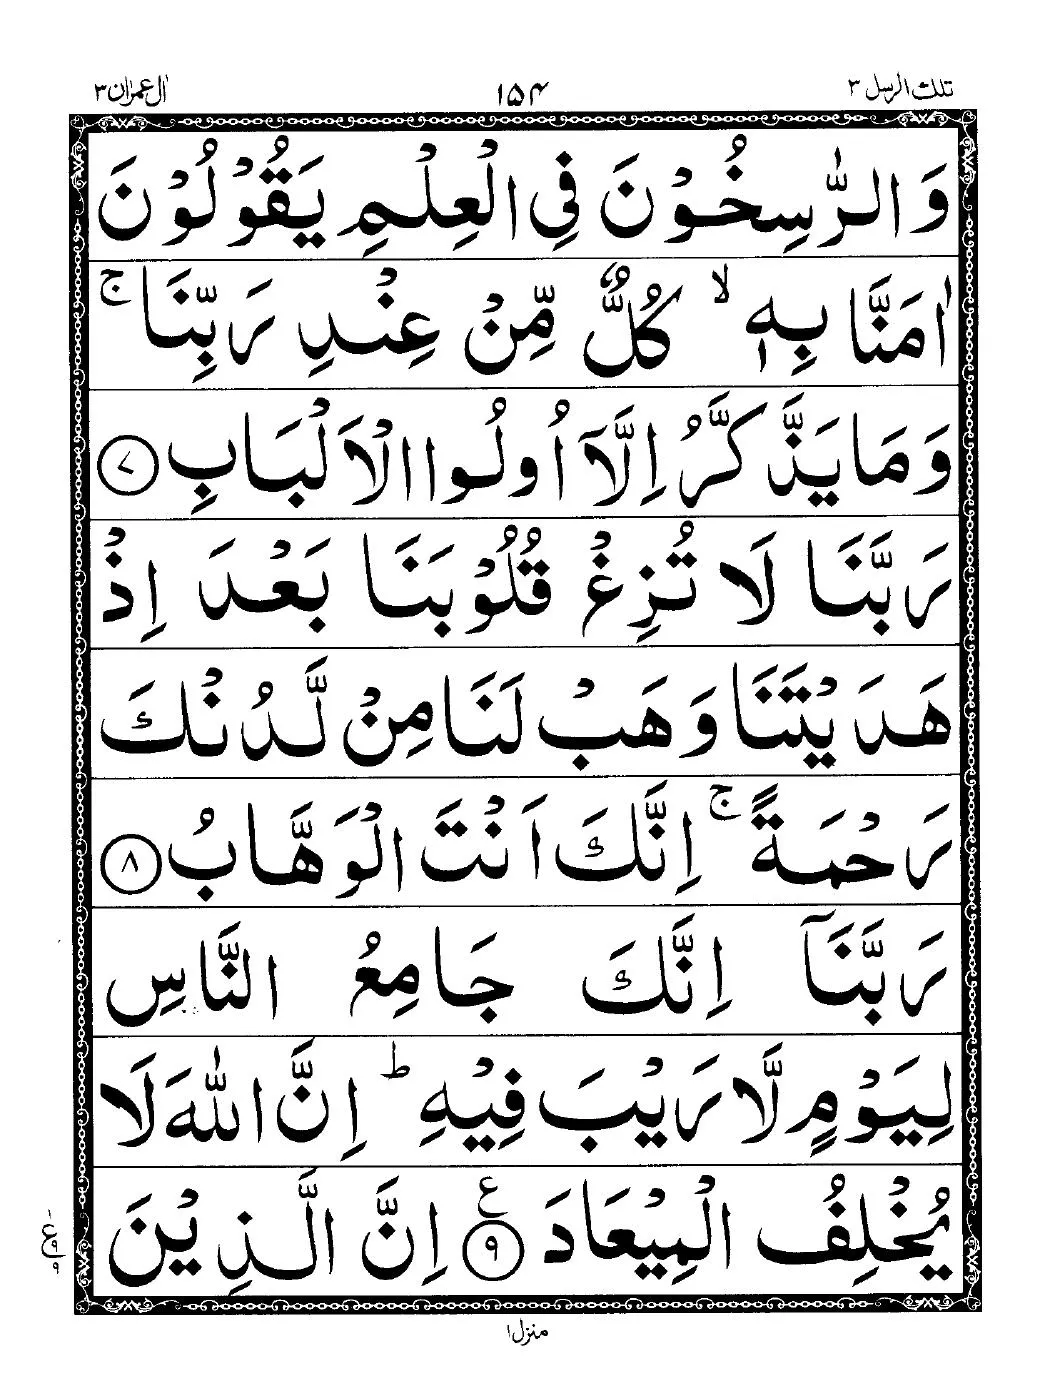 تلك الرسل ٣ ١٥٤ اٰل عمرٰن ٣
وَالرّٰسِخُوْنَ فِي الْعِلْمِ يَقُوْلُوْنَ
اٰمَنَّا بِهٖ ۙ كُلٌّ مِّنْ عِنْدِ رَبِّنَا ۚ
وَمَا يَذَّكَّرُ اِلَّاۤ اُولُوا الْاَلْبَابِ ٧
رَبَّنَا لَا تُزِغْ قُلُوْبَنَا بَعْدَ اِذْ
هَدَيْتَنَا وَهَبْ لَنَا مِنْ لَّدُنْكَ
رَحْمَةً ۚ اِنَّكَ اَنْتَ الْوَهَّابُ ٨
رَبَّنَاۤ اِنَّكَ جَامِعُ النَّاسِ
لِيَوْمٍ لَّا رَيْبَ فِيْهِ ؕ اِنَّ اللّٰهَ لَا
يُخْلِفُ الْمِيْعَادَ ٩ ع اِنَّ الَّذِيْنَ
منزل ١